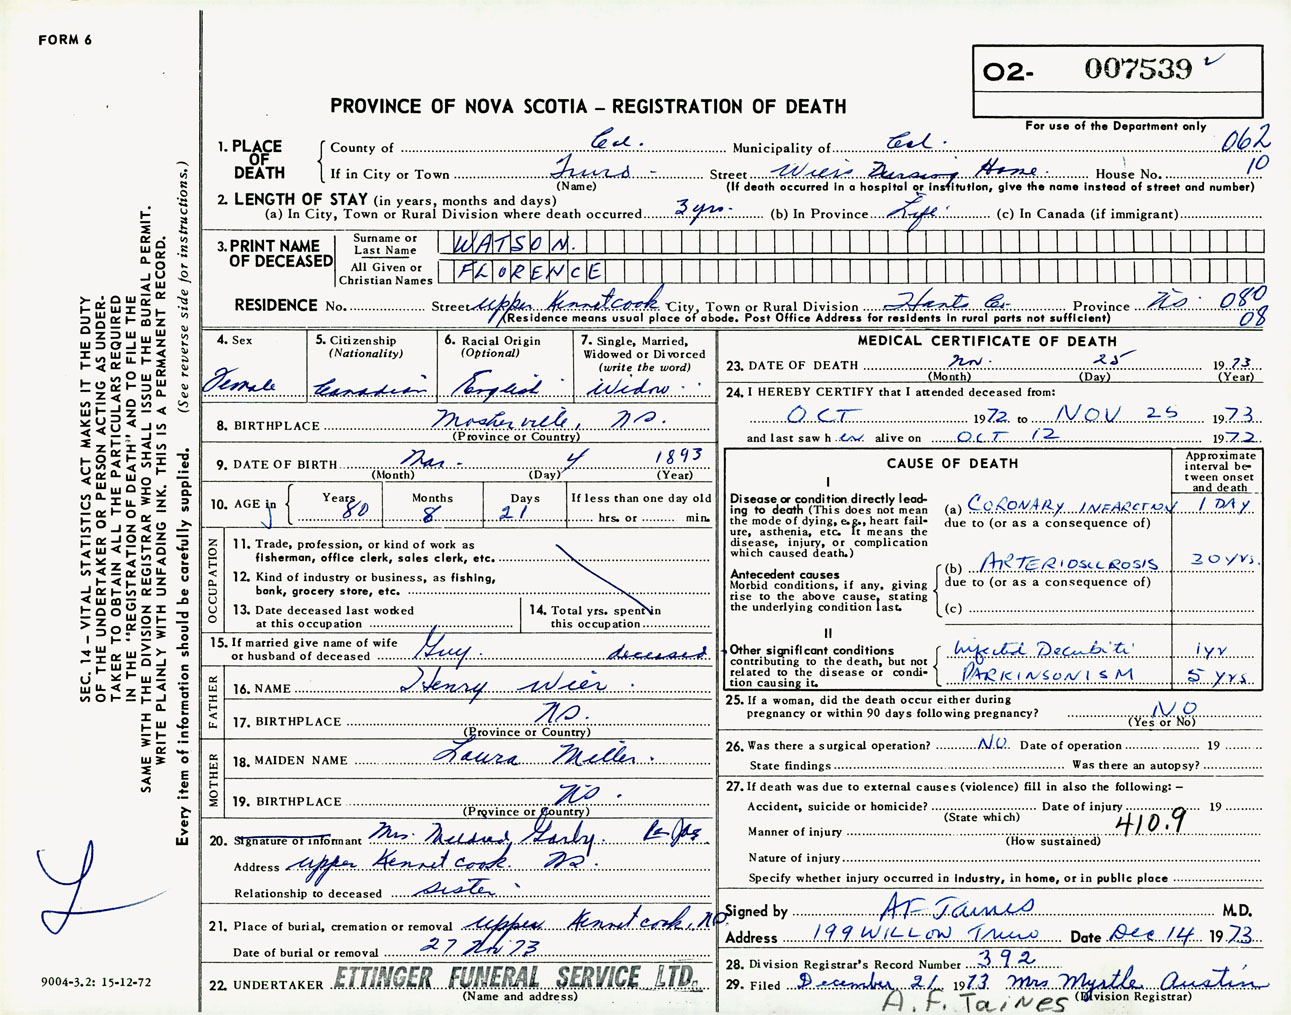 FORM 6
O2- 007539
PROVINCE OF NOVA SCOTIA – REGISTRATION OF DEATH
For use of the Department only
062
10
1. PLACE OF DEATH
County of Col. Municipality of Col.
If in City or Town Truro Street Wier's Nursing Home House No.
(Name) (If death occurred in a hospital or institution, give the name instead of street and number)
2. LENGTH OF STAY (in years, months and days)
(a) In City, Town or Rural Division where death occurred 3 yrs. (b) In Province Life (c) In Canada (if immigrant)
3. PRINT NAME OF DECEASED
Surname or Last Name WATSON.
All Given or Christian Names FLORENCE
RESIDENCE No. Street Upper Kennetcook City, Town or Rural Division Hants Co. Province N.S. 080
(Residence means usual place of abode. Post Office Address for residents in rural parts not sufficient) 08
4. Sex
Female
5. Citizenship (Nationality)
Canadian
6. Racial Origin (Optional)
English
7. Single, Married, Widowed or Divorced (write the word)
Widow
8. BIRTHPLACE Mosherville, N.S.
(Province or Country)
9. DATE OF BIRTH Mar. 4 1893
(Month) (Day) (Year)
10. AGE in Years 80 Months 8 Days 21 If less than one day old
hrs. or min.
OCCUPATION
11. Trade, profession, or kind of work as fisherman, office clerk, sales clerk, etc.
12. Kind of industry or business, as fishing, bank, grocery store, etc.
13. Date deceased last worked at this occupation
14. Total yrs. spent in this occupation
15. If married give name of wife or husband of deceased Guy. deceased
FATHER
16. NAME Henry Wier
17. BIRTHPLACE N.S.
(Province or Country)
MOTHER
18. MAIDEN NAME Laura Miller
19. BIRTHPLACE N.S.
(Province or Country)
20. Signature of informant Mrs. Mildred
Address Upper Kennetcook N.S.
Relationship to deceased sister
21. Place of burial, cremation or removal Upper Kennetcook, N.S.
Date of burial or removal 27 Nov 73
22. UNDERTAKER ETTINGER FUNERAL SERVICE LTD.
(Name and address)
MEDICAL CERTIFICATE OF DEATH
23. DATE OF DEATH Nov. 25 1973
(Month) (Day) (Year)
24. I HEREBY CERTIFY that I attended deceased from:
OCT 1972 to NOV 25 1973
and last saw her alive on OCT 12 1972
CAUSE OF DEATH
Approximate interval between onset and death
I
Disease or condition directly leading to death (This does not mean the mode of dying, e.g., heart failure, asthenia, etc. It means the disease, injury, or complication which caused death.)
(a) CORONARY INFARCTION 1 DAY
due to (or as a consequence of)
Antecedent causes
Morbid conditions, if any, giving rise to the above cause, stating the underlying condition last.
(b) ARTERIOSCLROSIS 30 yrs.
due to (or as a consequence of)
(c)
II
Other significant conditions contributing to the death, but not related to the disease or condition causing it.
Infected Decubiti 1 yr
PARKINSONISM 5 yrs.
25. If a woman, did the death occur either during pregnancy or within 90 days following pregnancy? NO
(Yes or No)
26. Was there a surgical operation? NO. Date of operation 19
State findings Was there an autopsy?
27. If death was due to external causes (violence) fill in also the following: –
Accident, suicide or homicide? Date of injury 19
(State which) 410.9
Manner of injury
(How sustained)
Nature of injury
Specify whether injury occurred in industry, in home, or in public place
Signed by AF Jaines M.D.
Address 199 WILLOW Truro Date Dec 14 1973
28. Division Registrar's Record Number 392
29. Filed December 21 1973 Mrs Myrtle Austin
A. F. JAINES (Division Registrar)
SEC. 14 – VITAL STATISTICS ACT MAKES IT THE DUTY
OF THE UNDERTAKER OR PERSON ACTING AS UNDER-
TAKER TO OBTAIN ALL THE PARTICULARS REQUIRED
IN THE "REGISTRATION OF DEATH" AND TO FILE THE
SAME WITH THE DIVISION REGISTRAR WHO SHALL ISSUE THE BURIAL PERMIT.
WRITE PLAINLY WITH UNFADING INK. THIS IS A PERMANENT RECORD.
Every item of information should be carefully supplied. (See reverse side for instructions.)
9004-3.2: 15-12-72